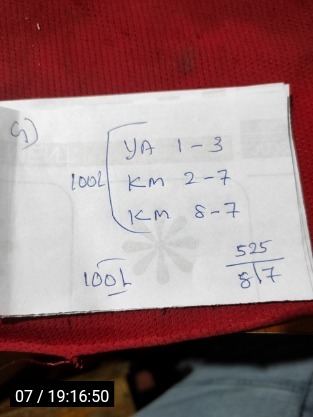 9)
YA 1-3
100L KM 2-7
KM 8-7
100L
525
8/7
07 / 19:16:50